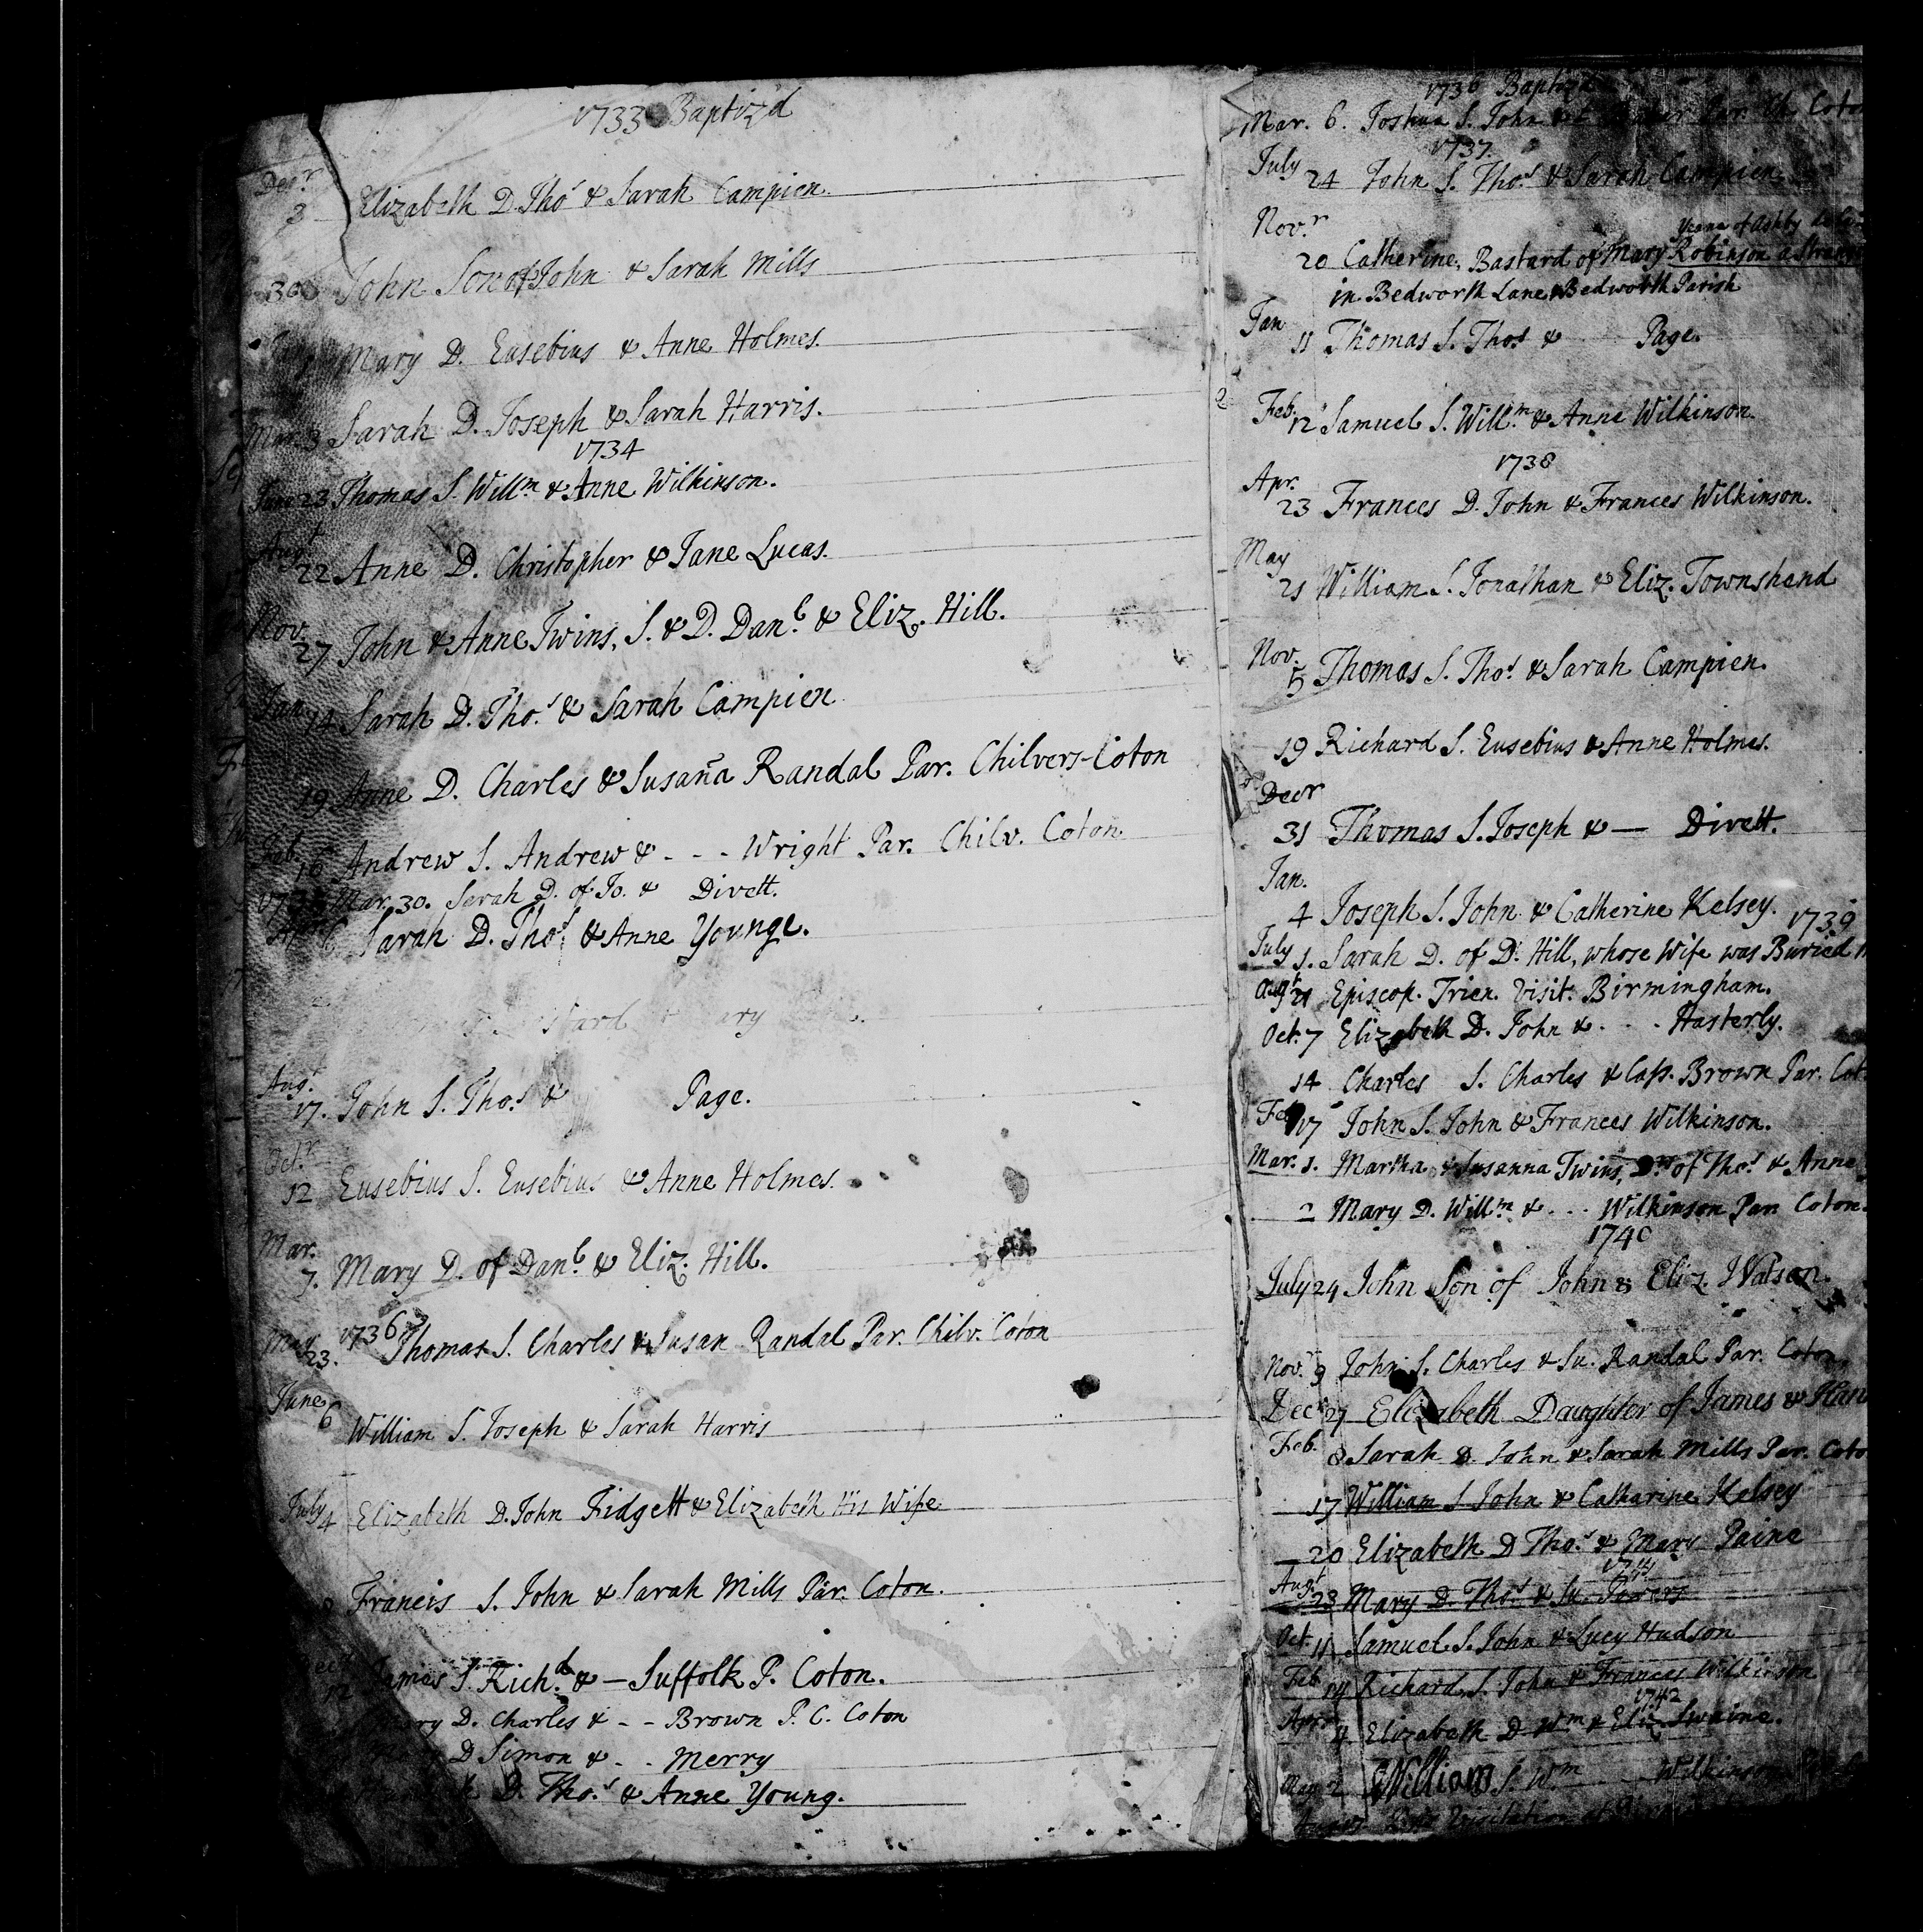 1733 Baptiz'd
Decr.
3 Elizabeth D. Thos & Sarah Campien.
30 John Son of John & Sarah Mills
Mary D. Eusebius & Anne Holmes.
Mar. 3 Sarah D. Joseph & Sarah Harris.
1734
June 23 Thomas S. Willm. & Anne Wilkinson.
Augt
22 Anne D. Christopher & Jane Lucas.
Nov.
27 John & Anne Twins, S. & D. Danl. & Eliz. Hill.
Jan. 14 Sarah D. Thos. & Sarah Campien
19 Anne D. Charles & Susaña Randal Par. Chilvers-Coton
Feb. 16 Andrew S. Andrew & - - - Wright Par. Chilv. Coton
Mar. 30. Sarah D. of Jo. & Divett.
Sarah D. Thos. & Anne Younge.
Augt.
17. John S. Thos. & Page.
Octr
12 Eusebius S. Eusebius & Anne Holmes.
Mar.
7. Mary D. of Danl. & Eliz. Hill.
1736
May 23. Thomas S. Charles & Susan Randal Par. Chilv. Coton
June
6 William S. Joseph & Sarah Harris
July 4 Elizabeth D. John Fidgett & Elizabeth His Wife
Francis S. John & Sarah Mills Par. Coton.
12 James S. Richd. & — Suffolk P. Coton.
Mary D. Charles & - - Brown P. C. Coton
D Simon & - - Merry
D. Thos. & Anne Young.
1736 Baptiz'd
Mar. 6. Joshua S. John & Par. Coton
1737.
July
24 John S. Thos. & Sarah Campien
Novr.
20 Catherine, Bastard of Mary Robinson a
in Bedworth Lane, Bedworth Parish
Jan
11 Thomas S. Thos. & Page.
Feb.
12 Samuel S. Willm. & Anne Wilkinson.
1738
Apr.
23 Frances D. John & Frances Wilkinson.
May
21 William S. Jonathan & Eliz. Townshend
Nov.
5 Thomas S. Thos. & Sarah Campien.
19 Richard S. Eusebius & Anne Holmes.
Decr
31 Thomas S. Joseph & — Divett.
Jan.
4 Joseph S. John & Catherine Kelsey.
1739
July 1. Sarah D. of D. Hill, whose Wife was Buried
Augt 21 Episcop. Trien. Visit. Birmingham.
Oct. 7 Elizabeth D. John & . . . Hasterly.
14 Charles S. Charles & Cass. Brown Par. Cot
Feb 17 John S. John & Frances Wilkinson.
Mar. 1. Martha & Susanna Twins, Drs of Thos. & Anne
2 Mary D. Willm & . . . Wilkinson Par. Coton.
1740
July 24 John Son of John & Eliz. Watson.
Nov. 9 John S. Charles & Su. Randal Par. Coton.
Decr 27 Elizabeth Daughter of James & Han
Feb. 8 Sarah D. John & Sarah Mills Par. Coto
17 William S John & Catharine Kelsey
20 Elizabeth D Thos. & Mary Paine
1741
Augt 23 Mary D. Thos. & Su. Powers
Oct. 11 Samuel S. John & Lucy Hudson
Feb 14 Richard S. John & Frances Wilkinson
1742
Apr 4 Elizabeth D Wm & Eliz Swaine.
May 2 William S. Wm Wilkinson